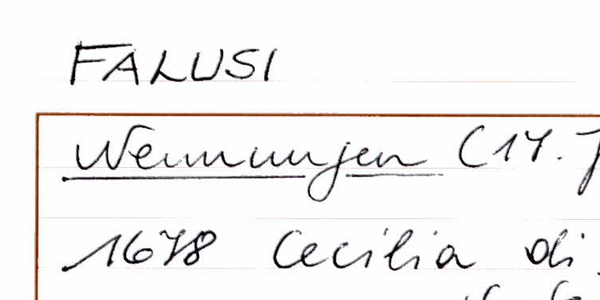 FALUSI
Nennungen (17. J
1678 Cecilia di